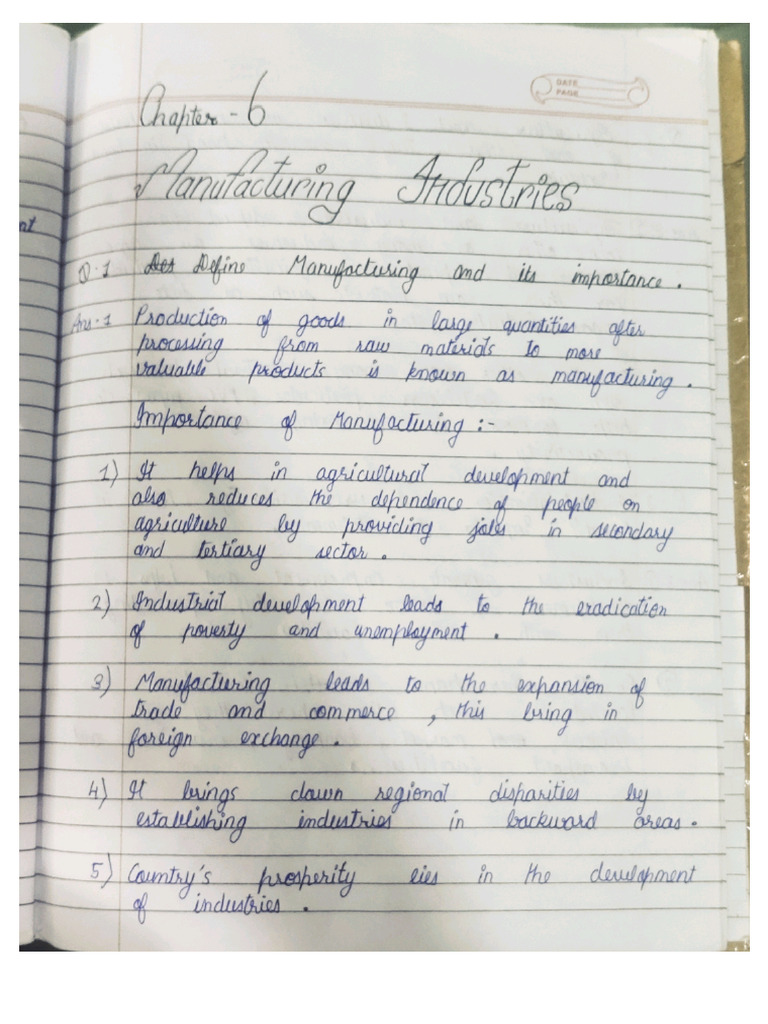 DATE
PAGE
Chapter - 6
Manufacturing Industries
Q.1 Des Define Manufacturing and its importance.
Ans-1 Production of goods in large quantities after
processing from raw materials to more
valuable products is known as manufacturing.
Importance of Manufacturing :-
1) It helps in agricultural development and
also reduces the dependence of people on
agriculture by providing jobs in secondary
and tertiary sector.
2) Industrial development leads to the eradication
of poverty and unemployment.
3) Manufacturing leads to the expansion of
trade and commerce, this bring in
foreign exchange.
4) It brings down regional disparities by
establishing industries in backward areas.
5) Country's prosperity lies in the development
of industries.